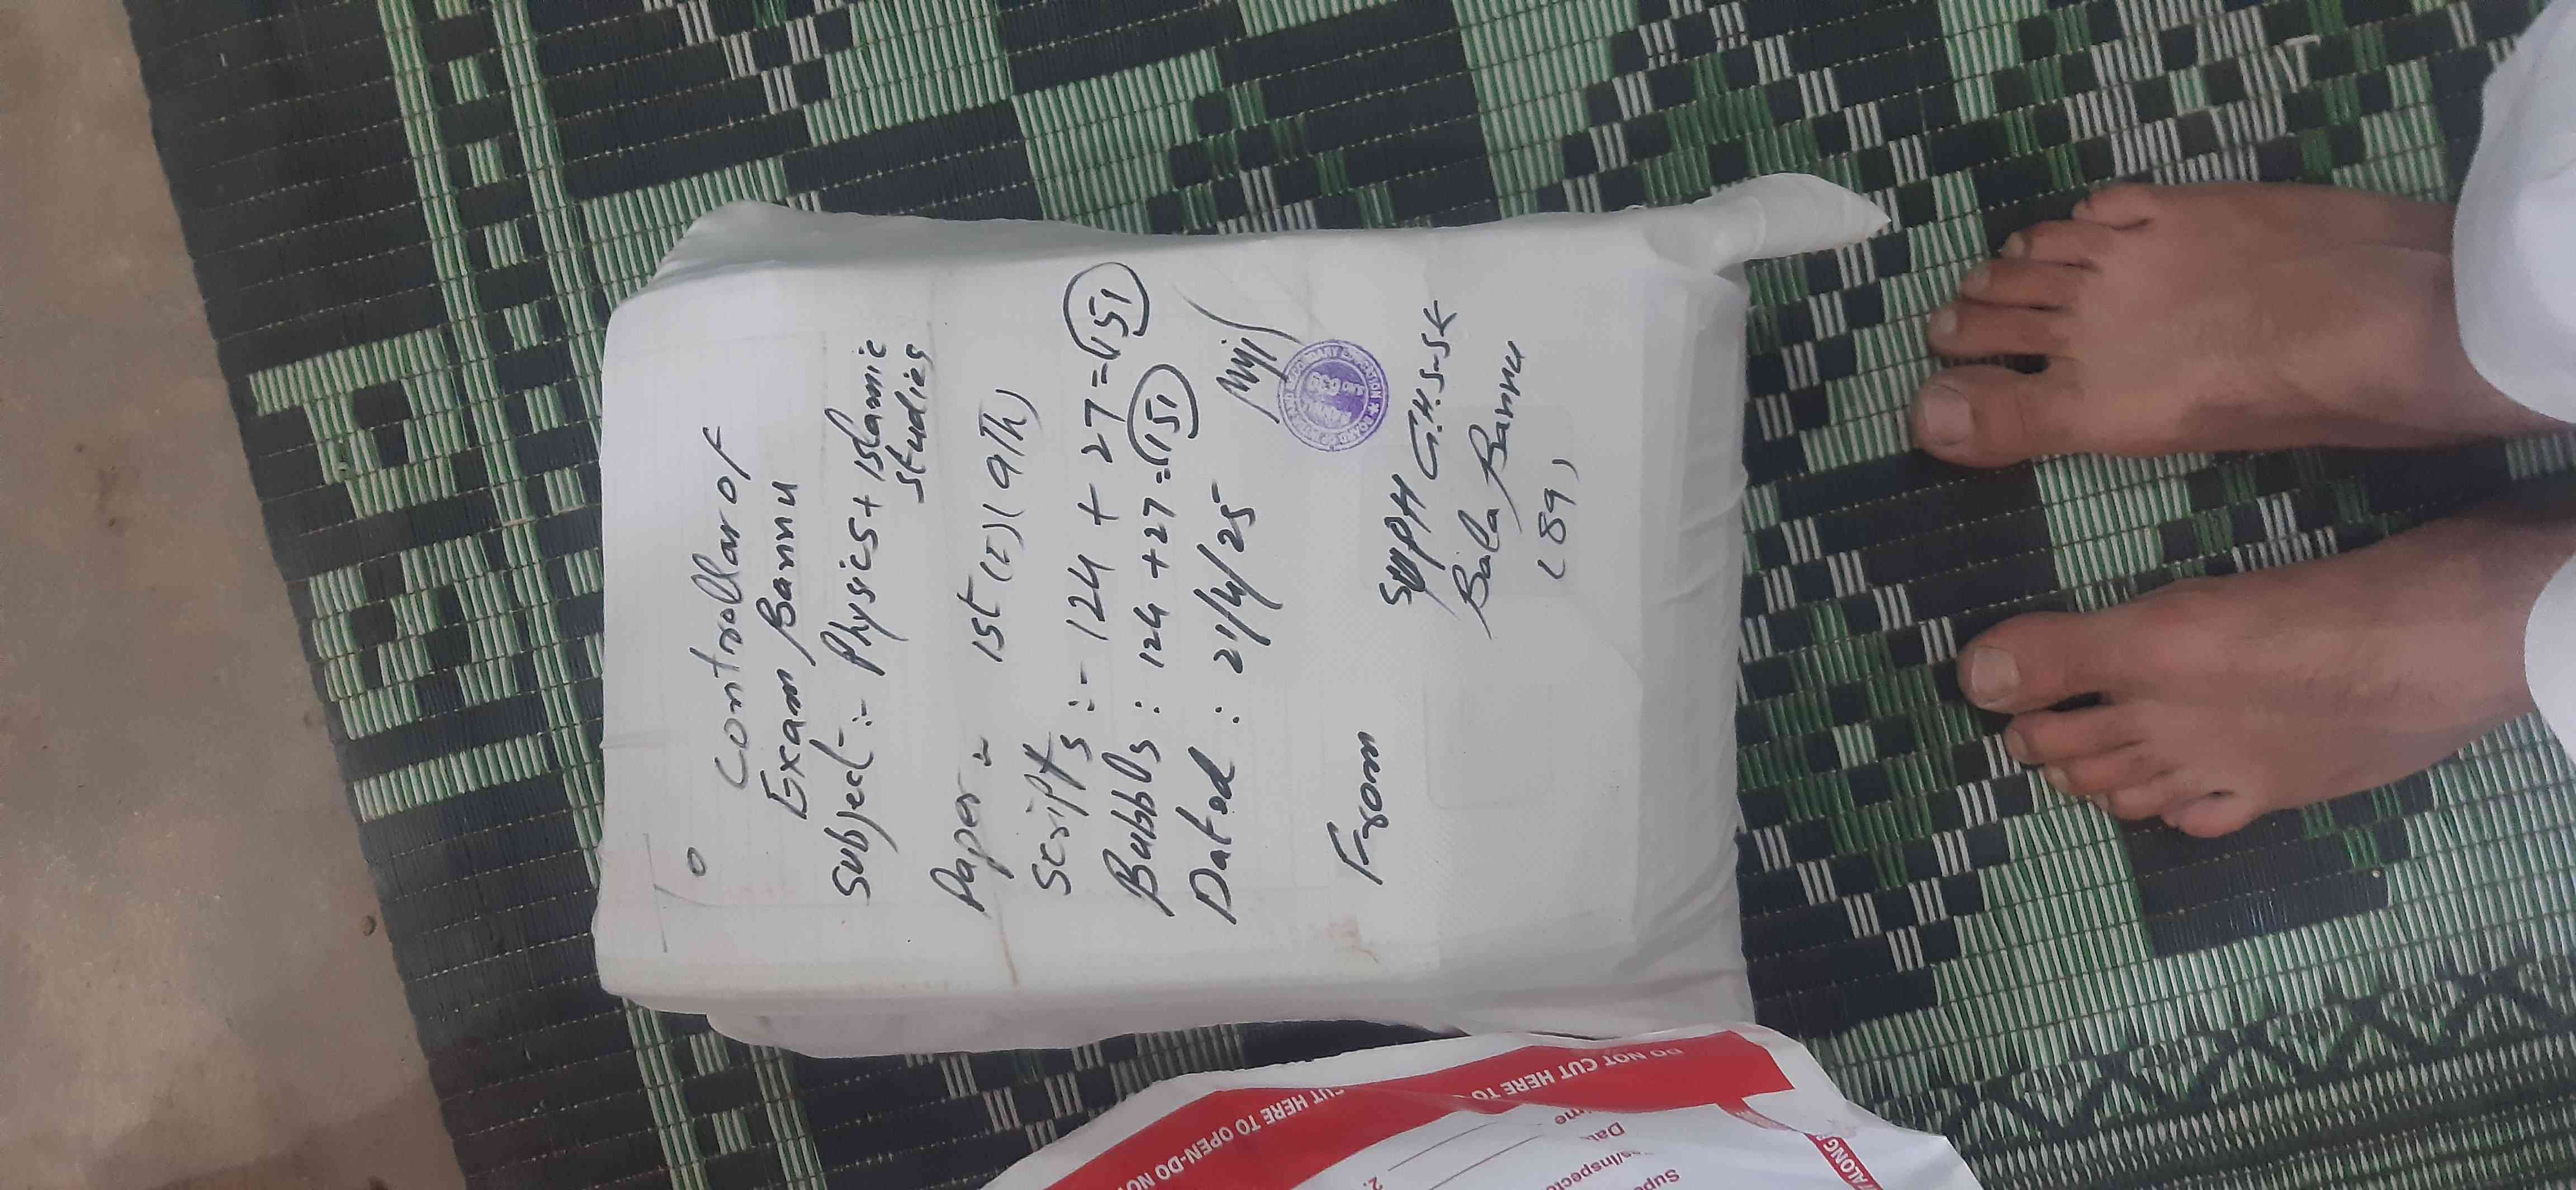 To
Controllar of
Exam Bannu
Subject :- Physics + Islamic
Studies
Paper :- 1st (E) (9Th)
Scripts :- 124 + 27 = 151
Bubbls : 124 + 27 = 151
Dated : 21/4/25
BOARD OF SECONDARY EDUCATION
BANNU
From
Supdt G.H.S.S K
Bala Bannu
(89)
CUT HERE TO OPEN-DO NOT
DO NOT CUT HERE TO
2.
ALONG